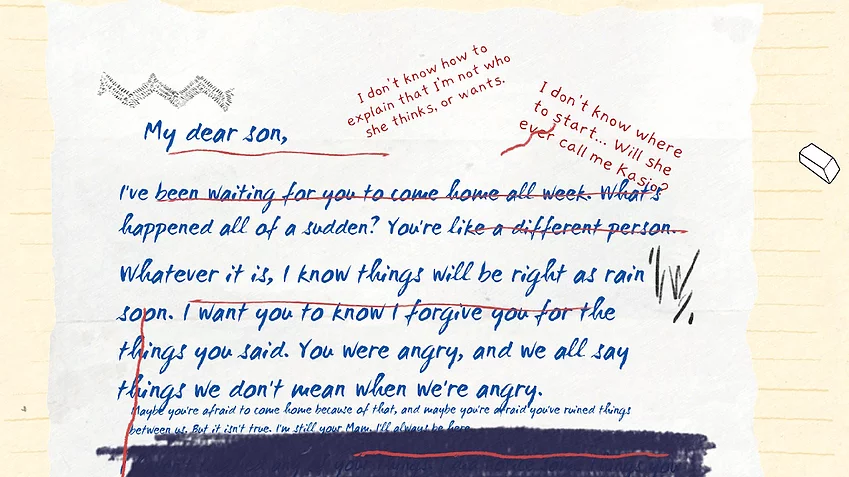 I don't know how to
explain that I'm not who
she thinks, or wants.
I don't know where
to start... Will she
ever call me Kasjo?
My dear son,
I've been waiting for you to come home all week. What's
happened all of a sudden? You're like a different person.
Whatever it is, I know things will be right as rain
soon. I want you to know I forgive you for the
things you said. You were angry, and we all say
things we don't mean when we're angry.
Maybe you're afraid to come home because of that, and maybe you're afraid you've ruined things
between us. But it isn't true. I'm still your Mam. I'll always be here